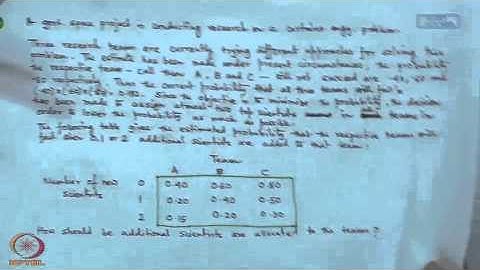 A govt. space project is conducting research on a certain engg. problem.
Three research teams are currently trying different approaches for solving this
problem. The estimate has been made under present circumstances, the probability
the respective teams - call them A, B and C - will not succeed are .40, .60 and
.80 respectively. Thus the current probability that all three teams will fail is
(.40)(.60)(.80) = 0.192. Since the objective is to minimize the probability, the decision
has been made to assign two top scientists in teams in
order to lower the probability as much as possible.
The following table gives the estimated probability that the respective teams will
fail when 0, 1 or 2 additional scientists are added to that team:
Team
A B C
Number of new 0 0.40 0.60 0.80
scientists 1 0.20 0.40 0.50
2 0.15 0.20 0.30
How should be additional scientists are allocated to the teams?
NPTEL